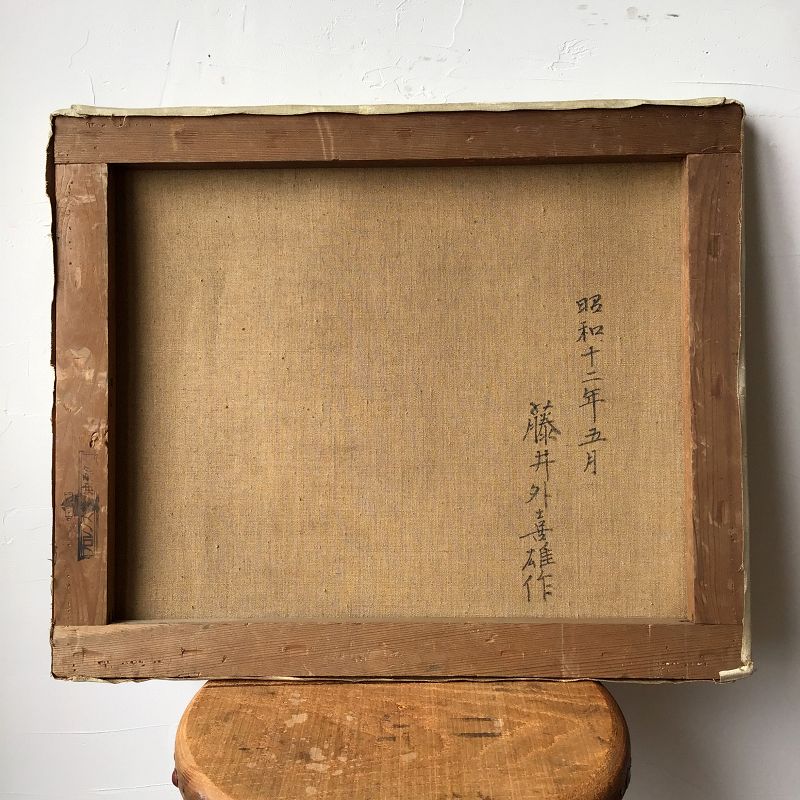 昭和十二年五月
藤井外喜雄作